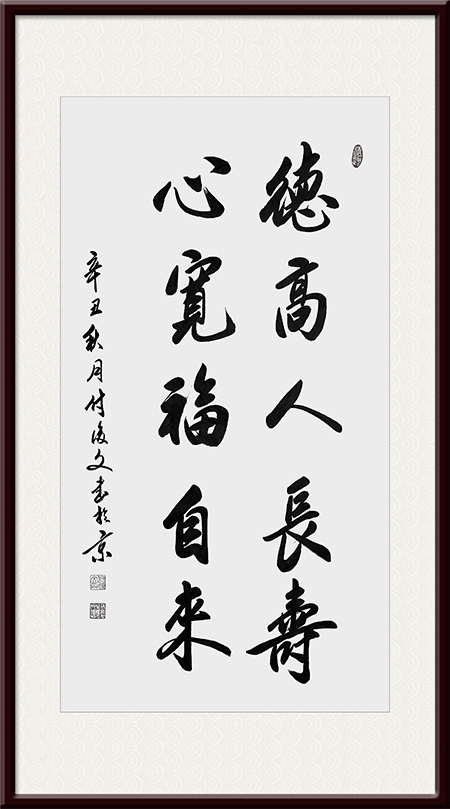 德高人長壽
心寬福自來
辛丑秋月付俊文书於京